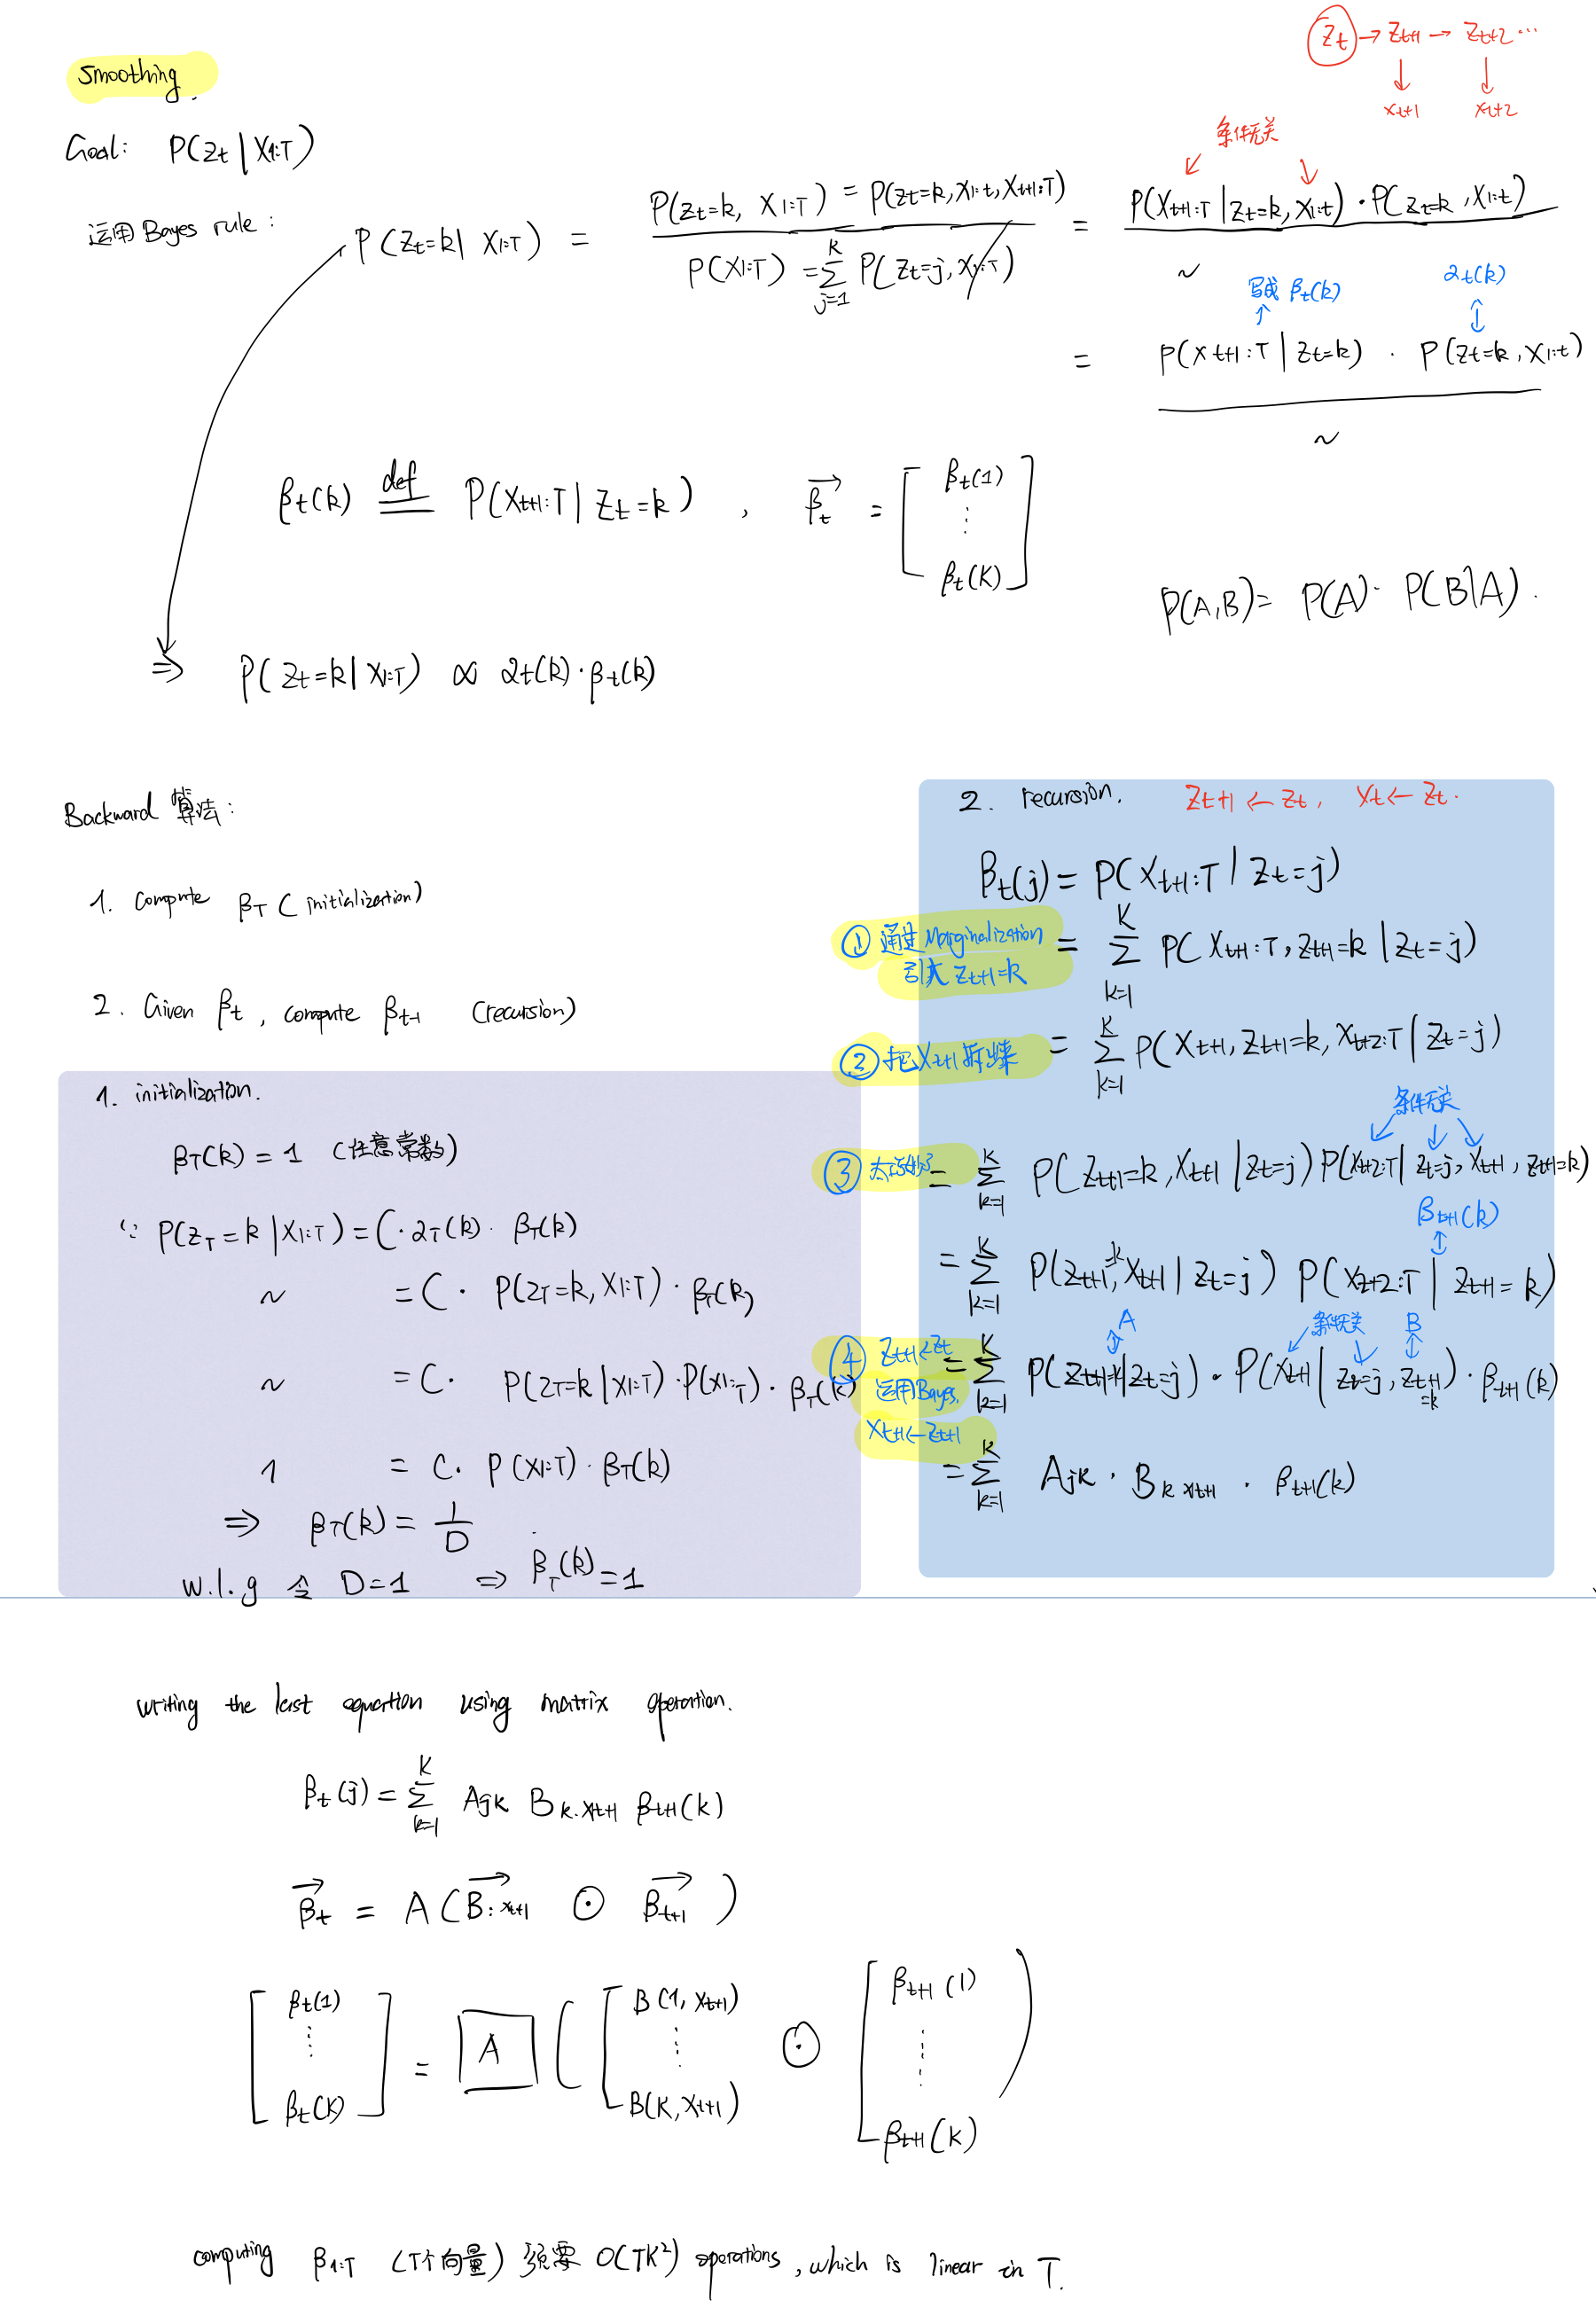 Smoothing.
Z_t → Z_{t+1} → Z_{t+2} ...
↓ ↓
x_{t+1} x_{t+2}
Goal: P(Z_t | X_{1:T})
条件无关
运用 Bayes rule: P(Z_t=k | X_{1:T}) = P(Z_t=k, X_{1:T}) = P(Z_t=k, X_{1:t}, X_{t+1:T}) / P(X_{1:T}) = Σ_{j=1}^{K} P(Z_t=j, X_{1:T}) = P(X_{t+1:T} | Z_t=k, X_{1:t}) · P(Z_t=k, X_{1:t}) / ~
写成 β_t(k) 2_t(k)
↑ ⇕
= P(X_{t+1:T} | Z_t=k) · P(Z_t=k, X_{1:t}) / ~
β_t(k) def= P(X_{t+1:T} | Z_t=k), β_t→ = [β_t(1) ⋮ β_t(K)]
P(A,B) = P(A)· P(B|A).
⇒ P(Z_t=k | X_{1:T}) ∝ 2_t(k)·β_t(k)
Backward 算法:
1. compute β_T (initialization)
2. Given β_t, compute β_{t-1} (recursion)
1. initialization.
β_T(k) = 1 (任意常数)
∵ P(Z_T=k | X_{1:T}) = C·2_T(k)· β_T(k)
~ = C· P(Z_T=k, X_{1:T})· β_T(k)
~ = C· P(Z_T=k | X_{1:T})·P(X_{1:T})· β_T(k)
1 = C· P(X_{1:T})· β_T(k)
⇒ β_T(k) = 1/D
w.l.g 令 D=1 ⇒ β_T(k)=1
2. recursion. Z_{t+1} ← Z_t, X_t ← Z_t.
β_t(j) = P(X_{t+1:T} | Z_t=j)
① 通过 Marginalization = Σ_{k=1}^{K} P(X_{t+1:T}, Z_{t+1}=k | Z_t=j)
引入 Z_{t+1}=k
② 把 X_{t+1} = Σ_{k=1}^{K} P(X_{t+1}, Z_{t+1}=k, X_{t+2:T} | Z_t=j)
条件无关
③ = Σ_{k=1}^{K} P(Z_{t+1}=k, X_{t+1} | Z_t=j) P(X_{t+2:T} | Z_t=j, X_{t+1}, Z_{t+1}=k)
β_{t+1}(k)
⇕
= Σ_{k=1}^{K} P(Z_{t+1}=k, X_{t+1} | Z_t=j) P(X_{t+2:T} | Z_{t+1}=k)
A 条件无关 B
④ Z_{t+1}←Z_t = Σ_{k=1}^{K} P(Z_{t+1}=k | Z_t=j) · P(X_{t+1} | Z_t=j, Z_{t+1}=k) · β_{t+1}(k)
运用 Bayes.
X_{t+1}←Z_{t+1}
= Σ_{k=1}^{K} A_{jk} · B_{k x_{t+1}} · β_{t+1}(k)
writing the last equation using matrix operation.
β_t(j) = Σ_{k=1}^{K} A_{jk} B_{k·x_{t+1}} β_{t+1}(k)
β_t→ = A (B_{:x_{t+1}}→ ⊙ β_{t+1}→)
[β_t(1) ⋮ β_t(K)] = A ([B(1, X_{t+1}) ⋮ B(K, X_{t+1})] ⊙ [β_{t+1}(1) ⋮ β_{t+1}(K)])
computing β_{1:T} (T个向量) 须要 O(TK²) operations, which is linear in T.